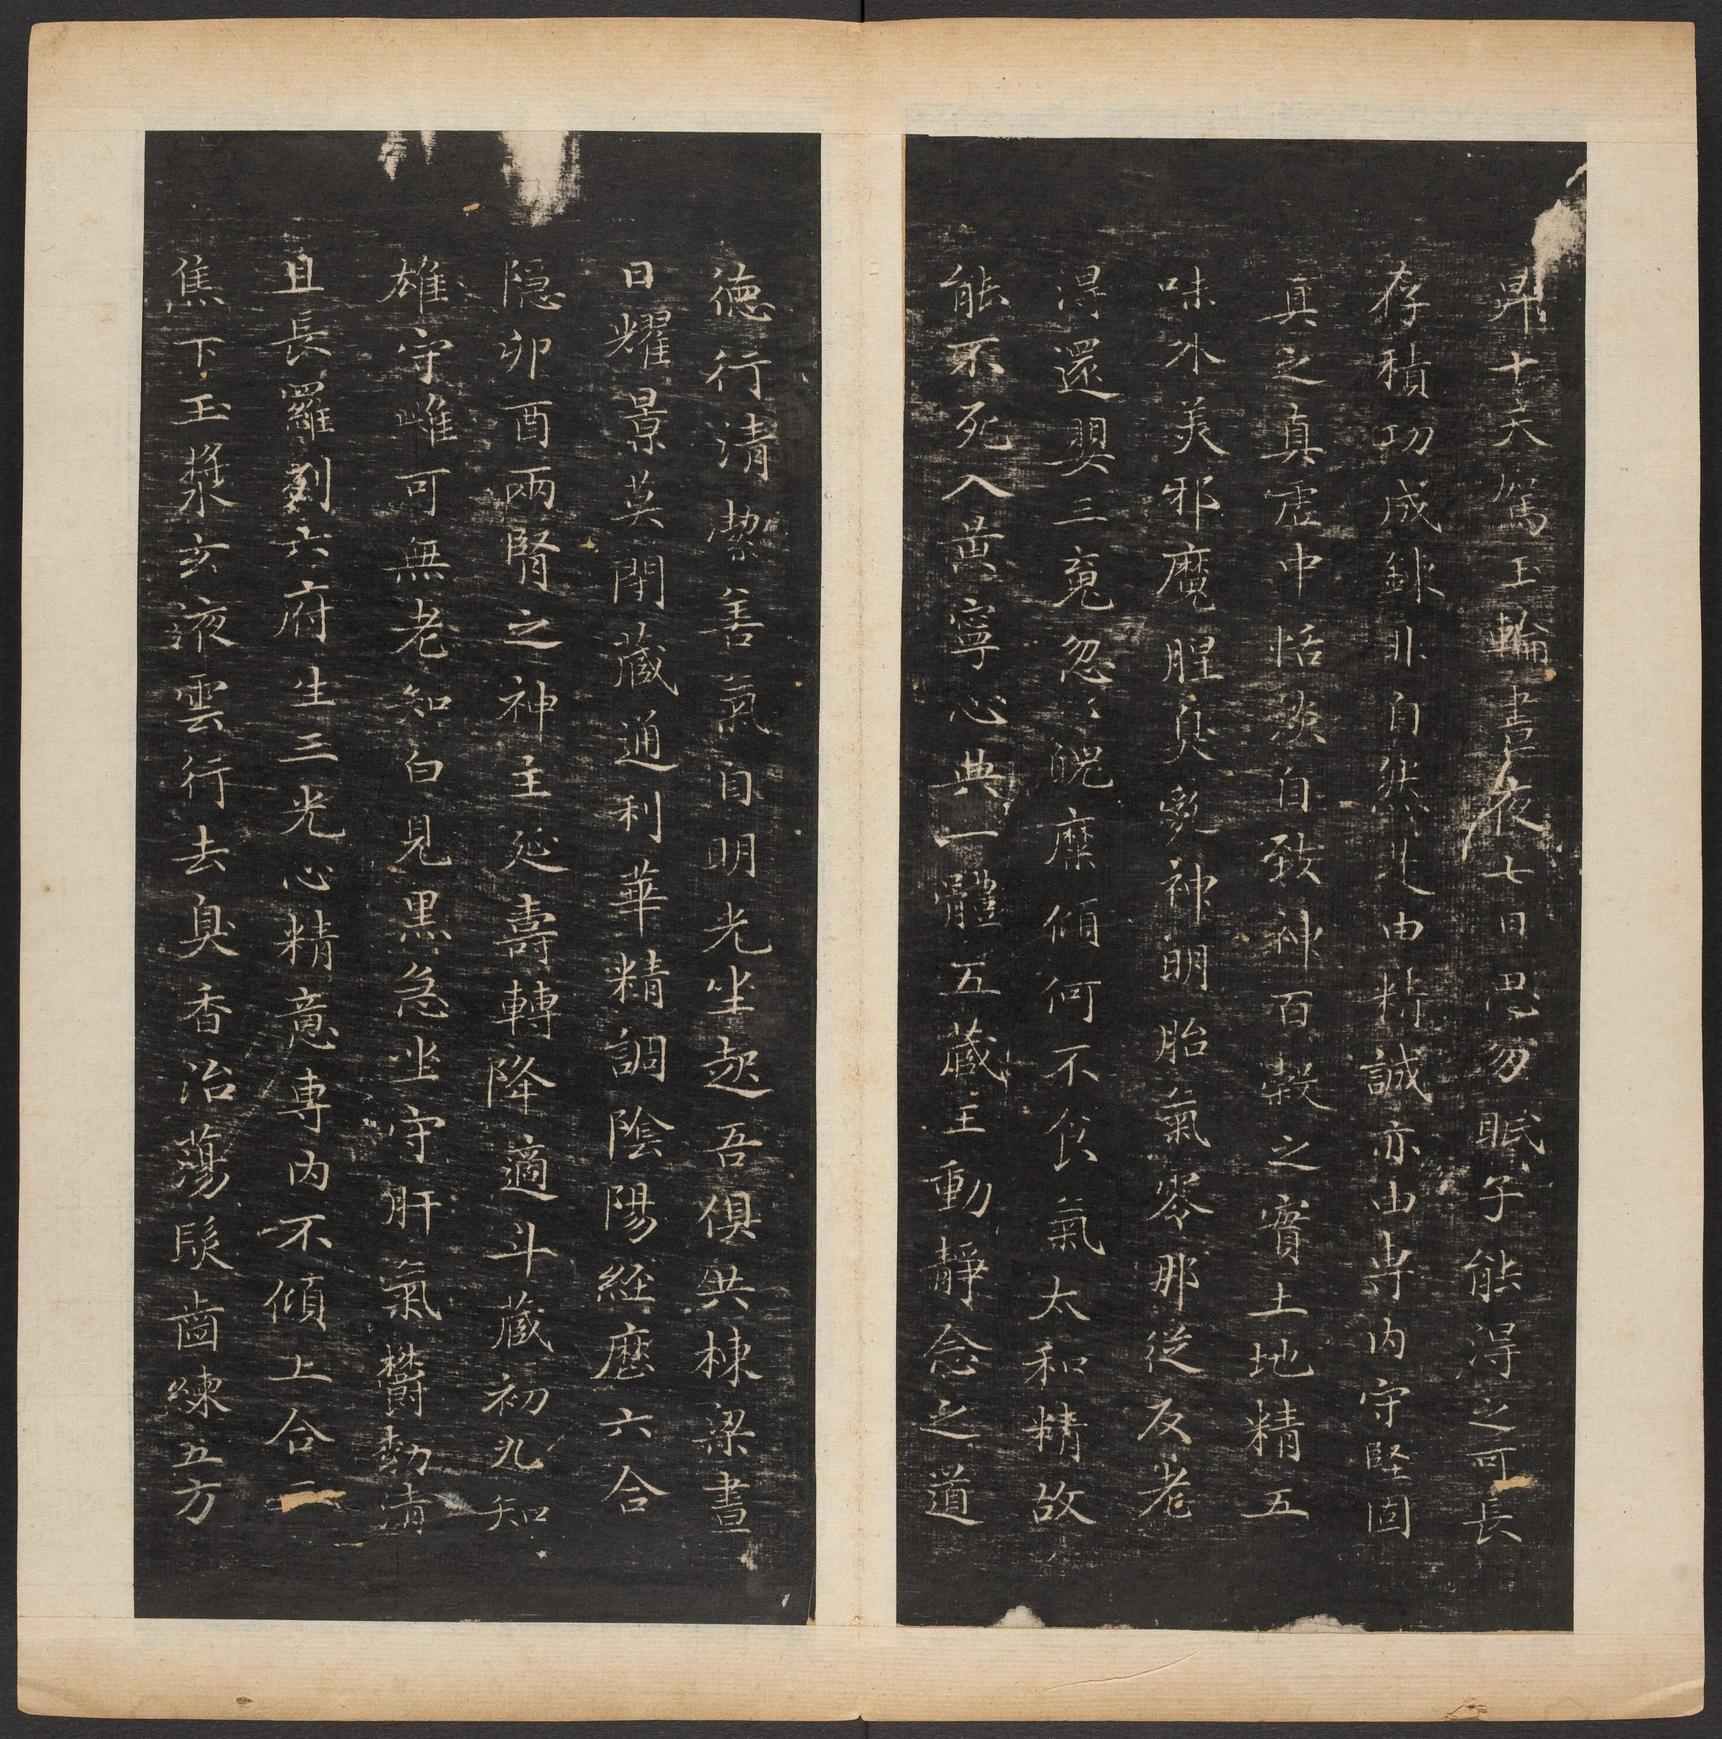 昇十天駕玉輪晝夜七日思勿眠子能淂之可長
存積功成鍊非自然是由精誠亦由專內守堅固
真之真虛中恬淡自致神百穀之實土地精五
味外美邪魔腥臭亂神明胎氣零那從反老
淂還嬰三魂忽〻魄糜傾何不食氣太和精故
能不死入黃寧心典一體五藏王動靜念之道
德行清潔善氣自明光坐起吾俱共棟梁晝
日耀景莫閉藏通利華精調陰陽經歷六合
隱卯酉兩腎之神主延壽轉降適斗藏初九知
雄守雌可無老知白見黑急坐守肝氣欎勃清
且長羅列六府生三光心精意專內不傾上合三
焦下玉漿玄液雲行去臭香治蕩髮齒練五方